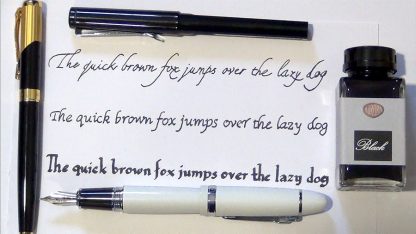 The quick brown fox jumps over the lazy dog
The quick brown fox jumps over the lazy dog
The quick brown fox jumps over the lazy dog
Black